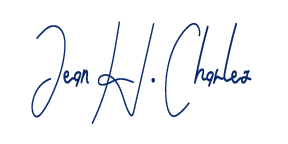 Jean H. Charles